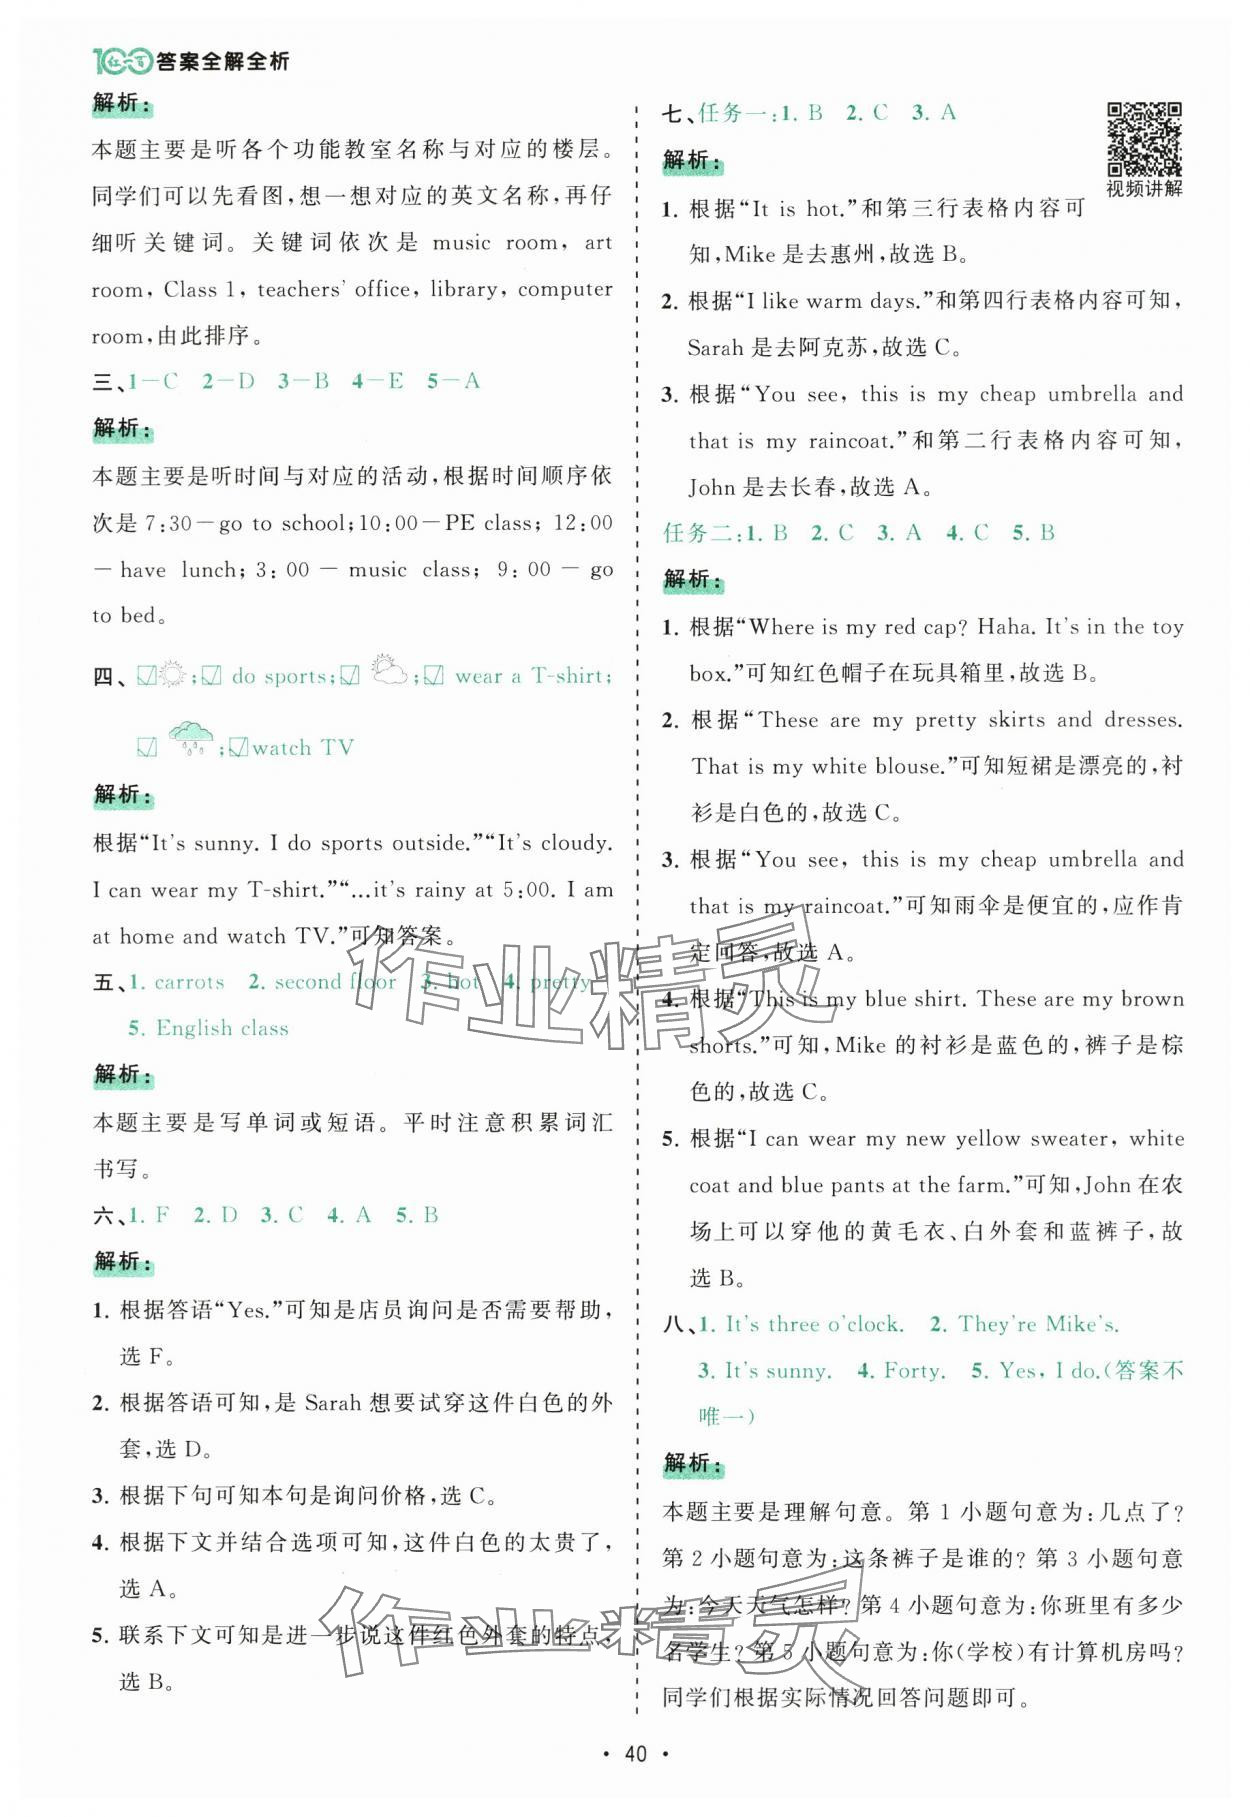 100 红一百 答案全解全析
解析：
本题主要是听各个功能教室名称与对应的楼层。
同学们可以先看图,想一想对应的英文名称,再仔
细听关键词。关键词依次是 music room, art
room, Class 1, teachers' office, library, computer
room,由此排序。
三、1－C 2－D 3－B 4－E 5－A
解析：
本题主要是听时间与对应的活动,根据时间顺序依
次是 7:30－go to school;10:00－PE class; 12:00
－have lunch; 3:00－music class; 9:00－go
to bed。
四、☑;☑ do sports;☑;☑ wear a T-shirt;
☑;☑watch TV
解析：
根据“It's sunny. I do sports outside.”“It's cloudy.
I can wear my T-shirt.”“…it's rainy at 5:00. I am
at home and watch TV.”可知答案。
五、1. carrots 2. second floor 3. hot 4. pretty
5. English class
解析：
本题主要是写单词或短语。平时注意积累词汇
书写。
六、1. F 2. D 3. C 4. A 5. B
解析：
1. 根据答语“Yes.”可知是店员询问是否需要帮助,
选 F。
2. 根据答语可知,是 Sarah 想要试穿这件白色的外
套,选 D。
3. 根据下句可知本句是询问价格,选 C。
4. 根据下文并结合选项可知,这件白色的太贵了,
选 A。
5. 联系下文可知是进一步说这件红色外套的特点,
选 B。
七、任务一:1. B 2. C 3. A
视频讲解
解析：
1. 根据“It is hot.”和第三行表格内容可
知,Mike 是去惠州,故选 B。
2. 根据“I like warm days.”和第四行表格内容可知,
Sarah 是去阿克苏,故选 C。
3. 根据“You see, this is my cheap umbrella and
that is my raincoat.”和第二行表格内容可知,
John 是去长春,故选 A。
任务二:1. B 2. C 3. A 4. C 5. B
解析：
1. 根据“Where is my red cap? Haha. It's in the toy
box.”可知红色帽子在玩具箱里,故选 B。
2. 根据“These are my pretty skirts and dresses.
That is my white blouse.”可知短裙是漂亮的,衬
衫是白色的,故选 C。
3. 根据“You see, this is my cheap umbrella and
that is my raincoat.”可知雨伞是便宜的,应作肯
定回答,故选 A。
4. 根据“This is my blue shirt. These are my brown
shorts.”可知,Mike 的衬衫是蓝色的,裤子是棕
色的,故选 C。
5. 根据“I can wear my new yellow sweater, white
coat and blue pants at the farm.”可知,John 在农
场上可以穿他的黄毛衣、白外套和蓝裤子,故
选 B。
八、1. It's three o'clock. 2. They're Mike's.
3. It's sunny. 4. Forty. 5. Yes, I do.(答案不
唯一)
解析：
本题主要是理解句意。第 1 小题句意为:几点了?
第 2 小题句意为:这条裤子是谁的? 第 3 小题句意
为:今天天气怎样? 第 4 小题句意为:你班里有多少
名学生? 第 5 小题句意为:你(学校)有计算机房吗?
同学们根据实际情况回答问题即可。
作业精灵
作业精灵
· 40 ·